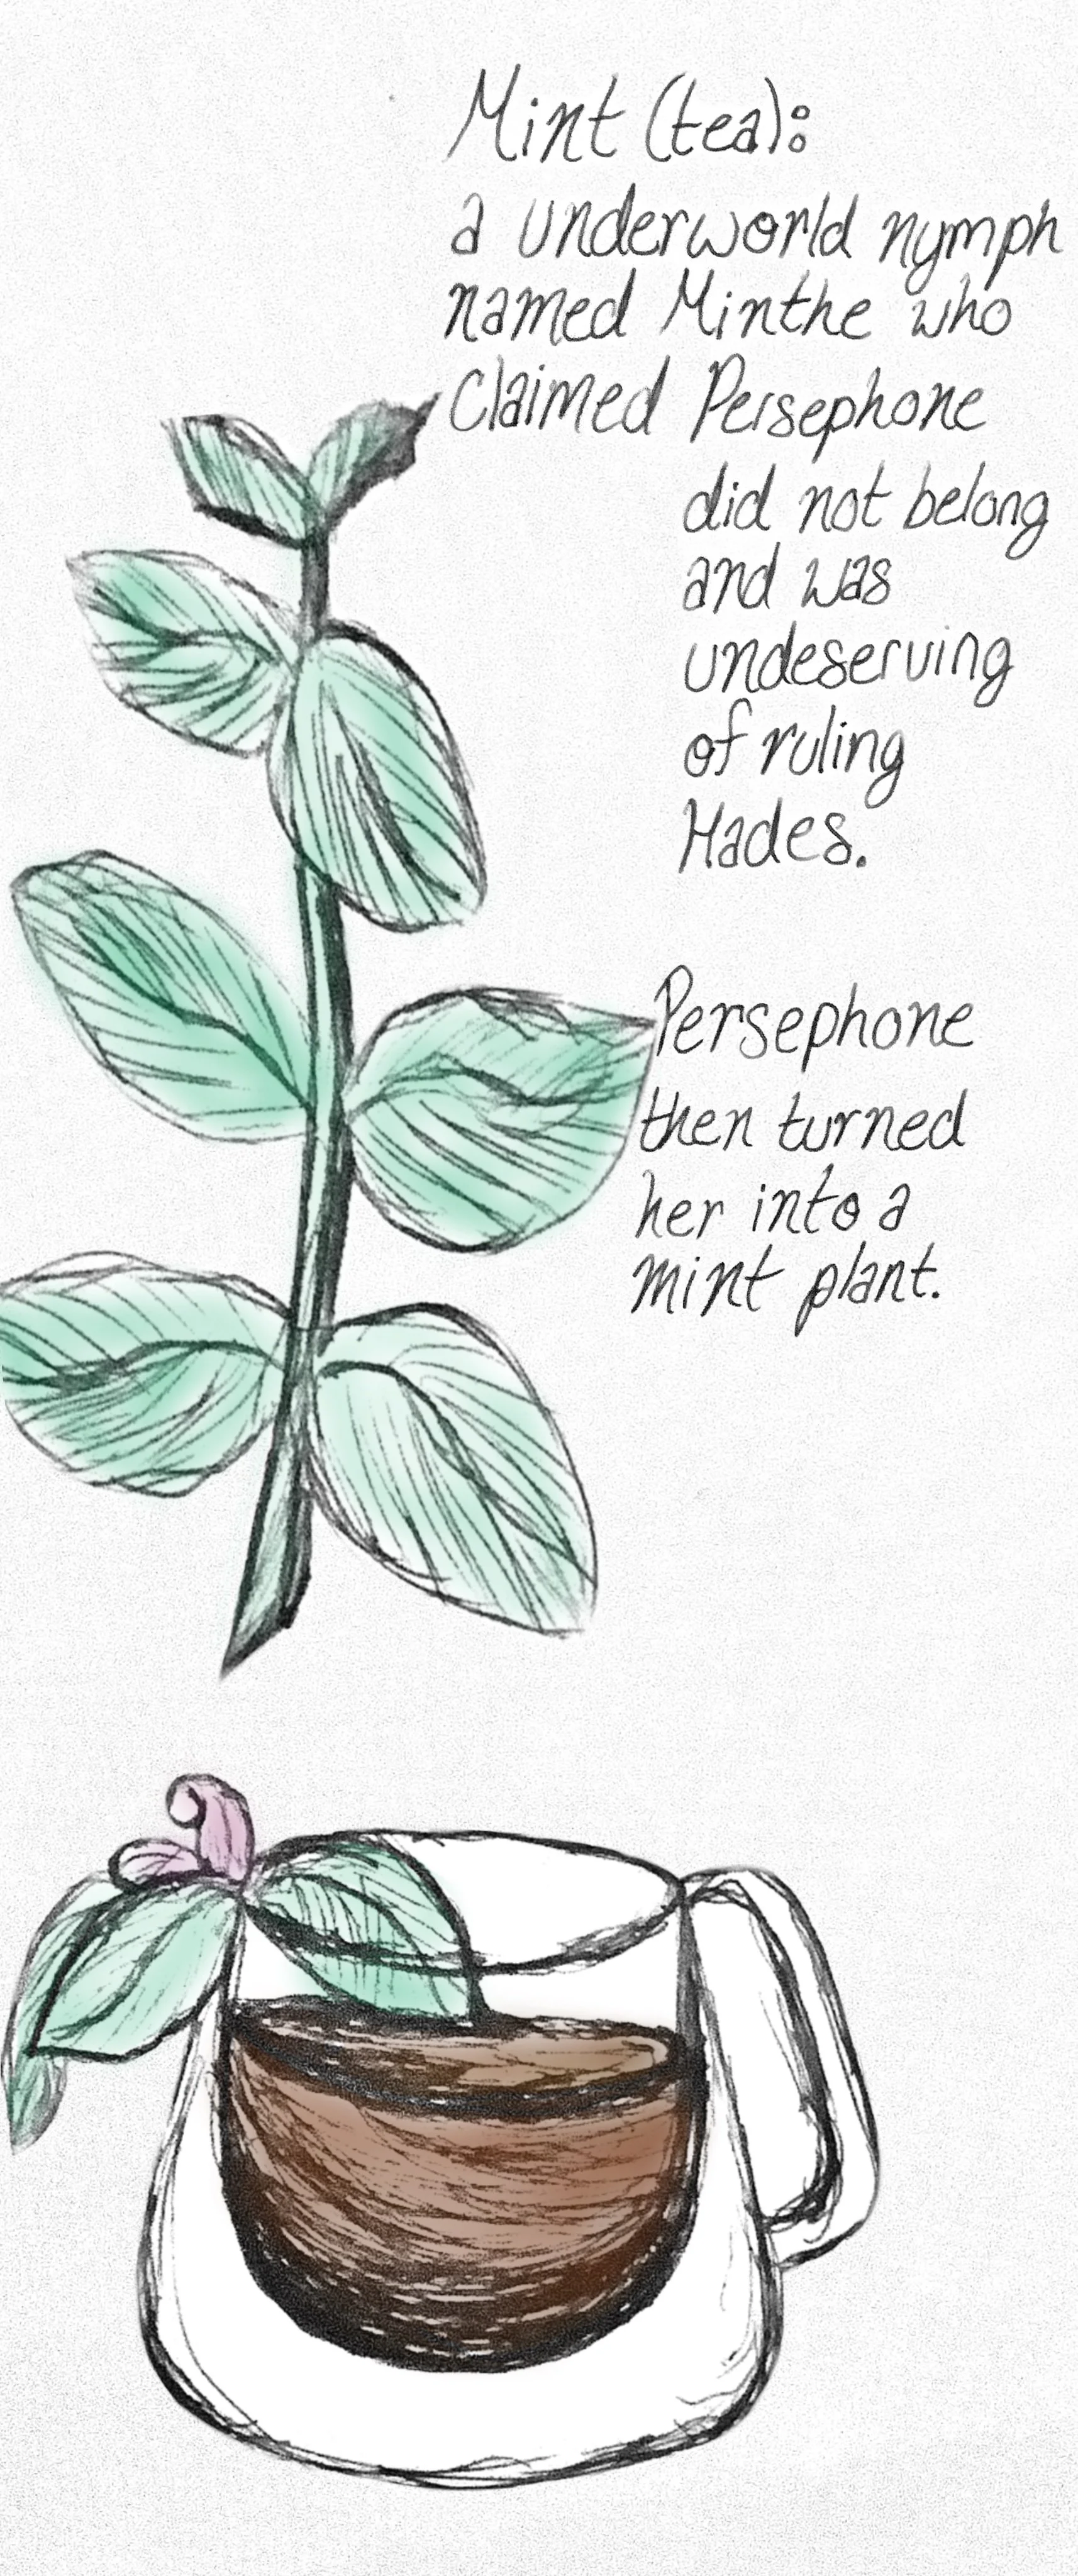 Mint (tea):
a underworld nymph
named Minthe who
Claimed Persephone
did not belong
and was
undeserving
of ruling
Hades.
Persephone
then turned
her into a
mint plant.